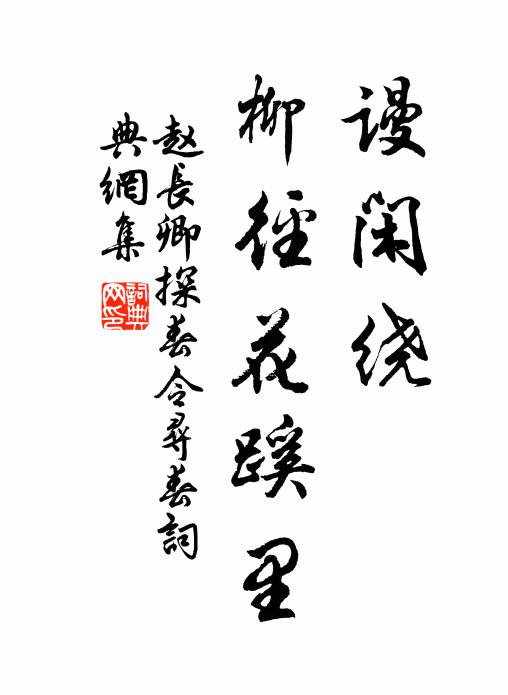 谩闲绕
柳徑花蹊里
赵長卿探春令尋春詞
典網集
詞典
网印